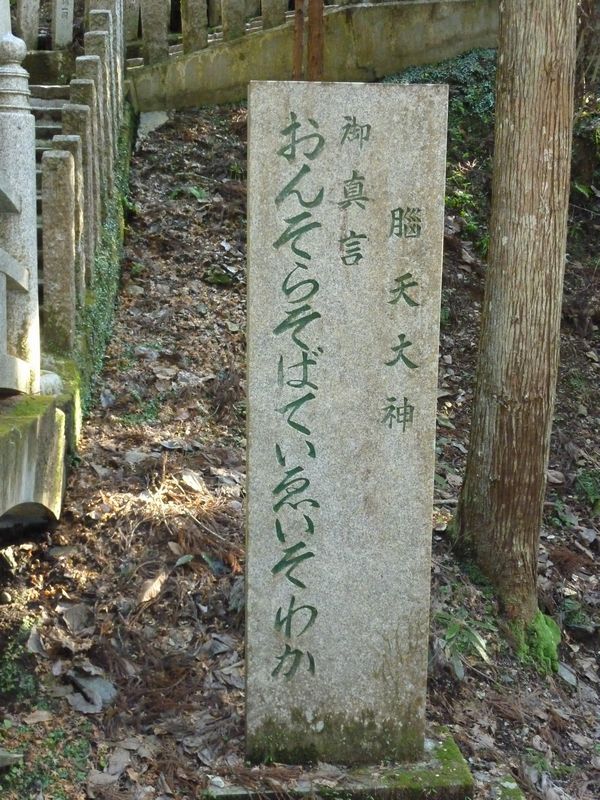 脳天大神
御真言
おんそらそばていゑいそわか